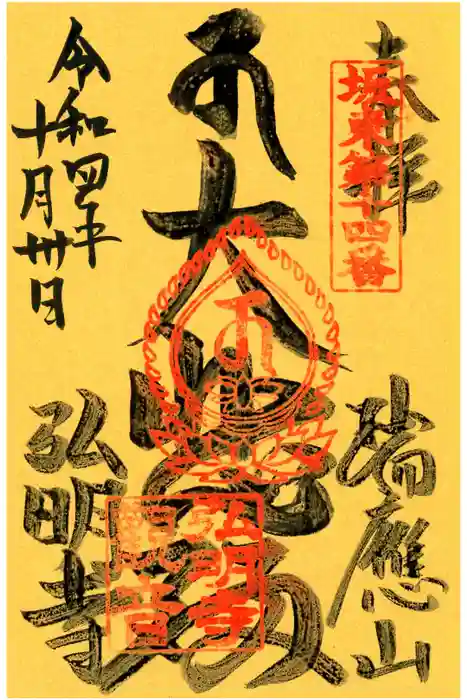 奉拝
坂東第十四番
瑞應山
大
弘明寺
觀音
令和四年
十月卅日
弘明寺